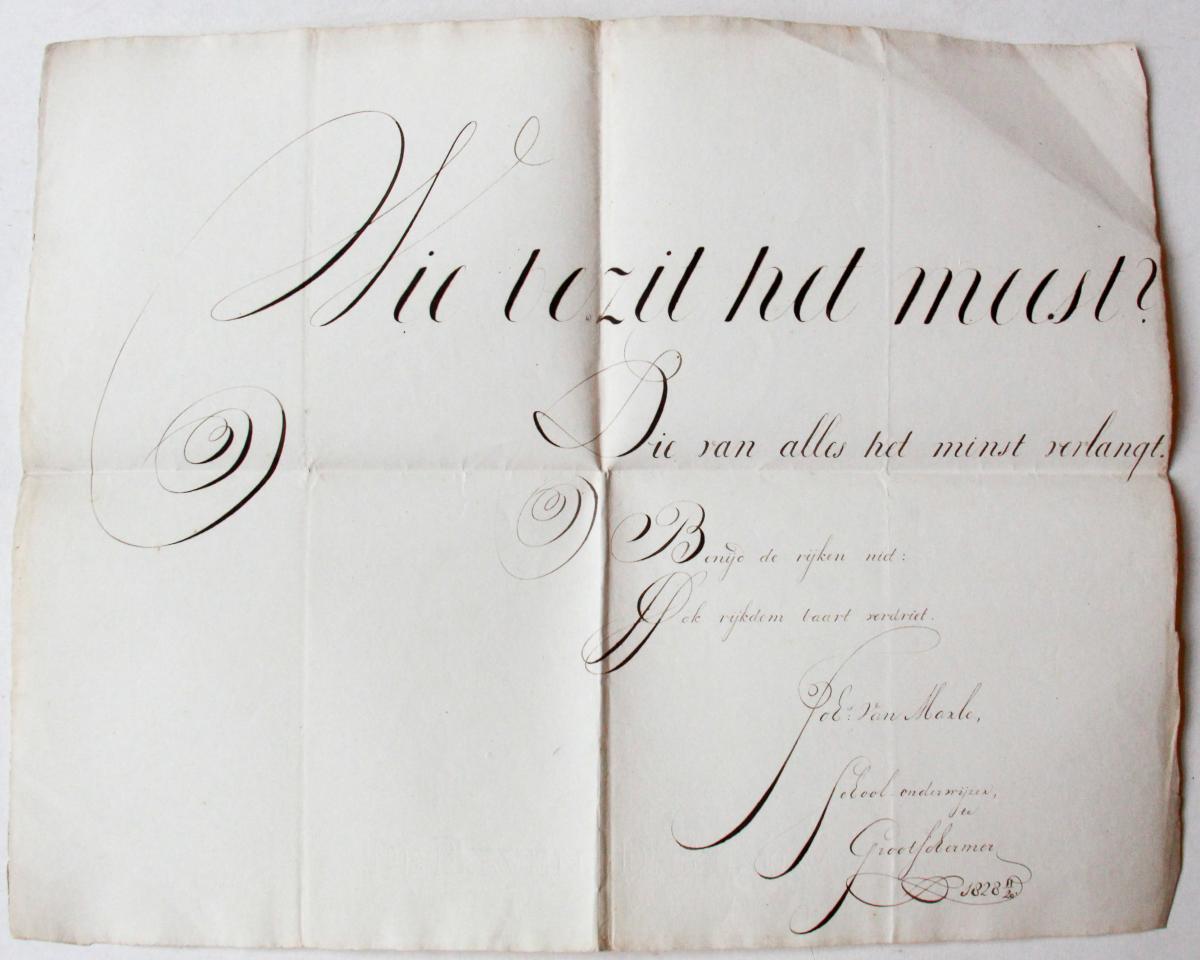 Wie bezit het meest?
Die van alles het minst verlangt.
Benijd de rijken niet:
Ook rijkdom baart verdriet.
Joh.s van Marle,
School-onderwijzer,
te
Grootschermer
1828 11/20